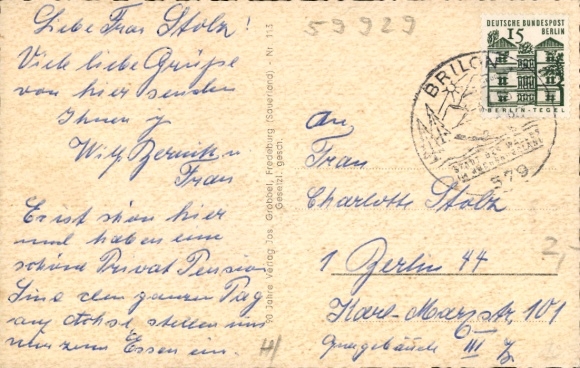 Liebe Frau Stolz!
Viele liebe Grüße
von hier senden
Ihnen
Frau
Es ist schön hier
und haben eine
schöne Privat Pension
Sind den ganzen Tag
auf Achse, stellen uns
nur zum Essen ein.
H/
90 Jahre Verlag Jos. Grobbel, Fredeburg (Sauerland) - Nr 115
Gesetzl. gesch.
59929
DEUTSCHE BUNDESPOST
15 BERLIN
BERLIN-TEGEL
BRILON
579
An
Frau
Charlotte Stolz
1 Berlin 44
Karl-Marxstr. 101
III
2,-